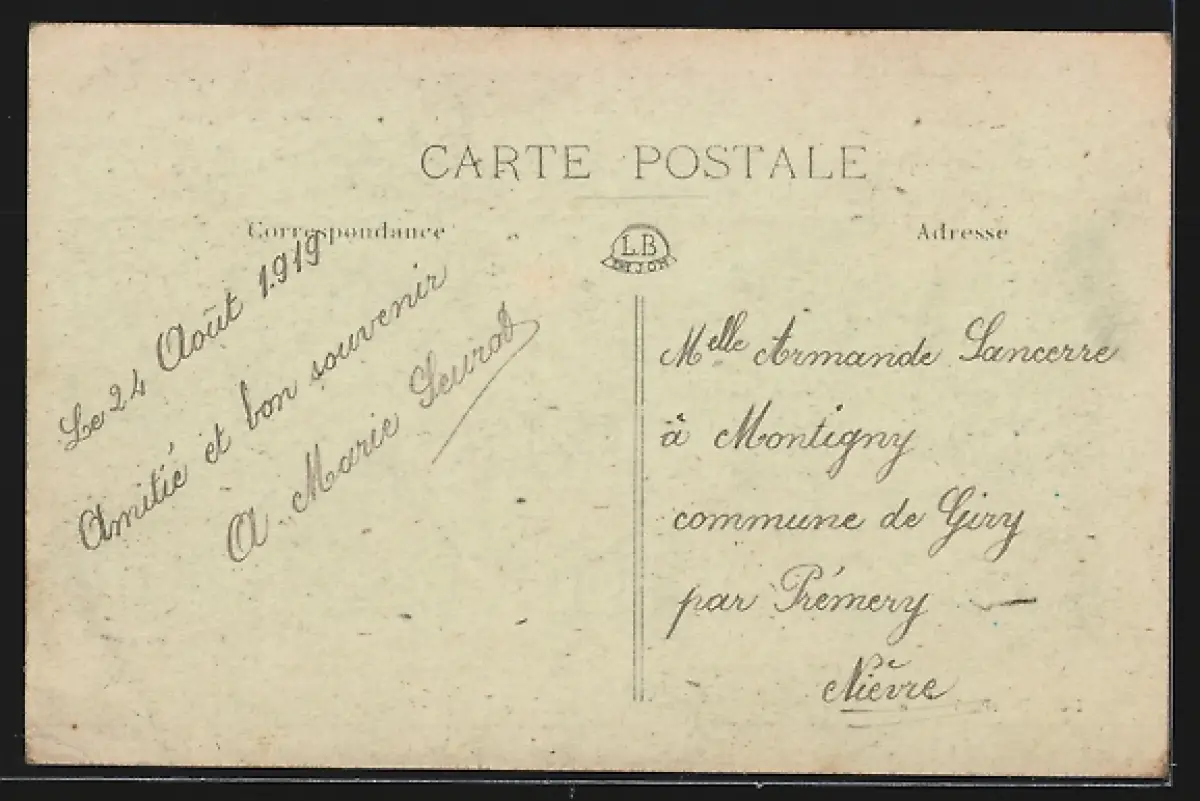 CARTE POSTALE
Correspondance
Adresse
L.B
DIJON
Le 24 Août 1919
Amitié et bon souvenir
A Marie
Melle Armande Sancerre
à Montigny
commune de Giry
par Prémery
Nièvre